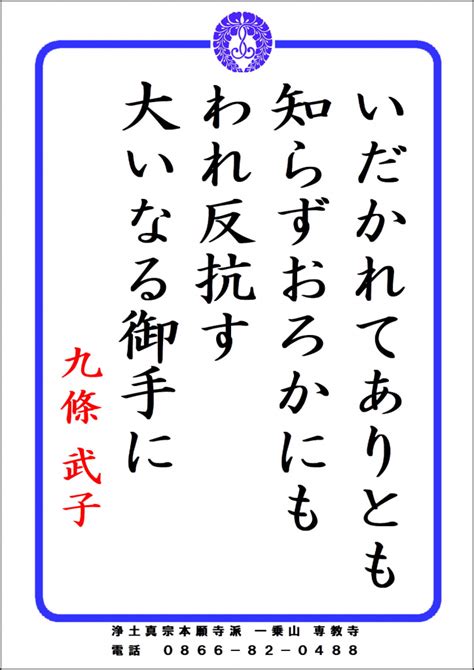 いだかれてありとも
知らずおろかにも
われ反抗す
大いなる御手に
九條 武子
浄土真宗本願寺派 一乗山 専教寺
電話 0866-82-0488